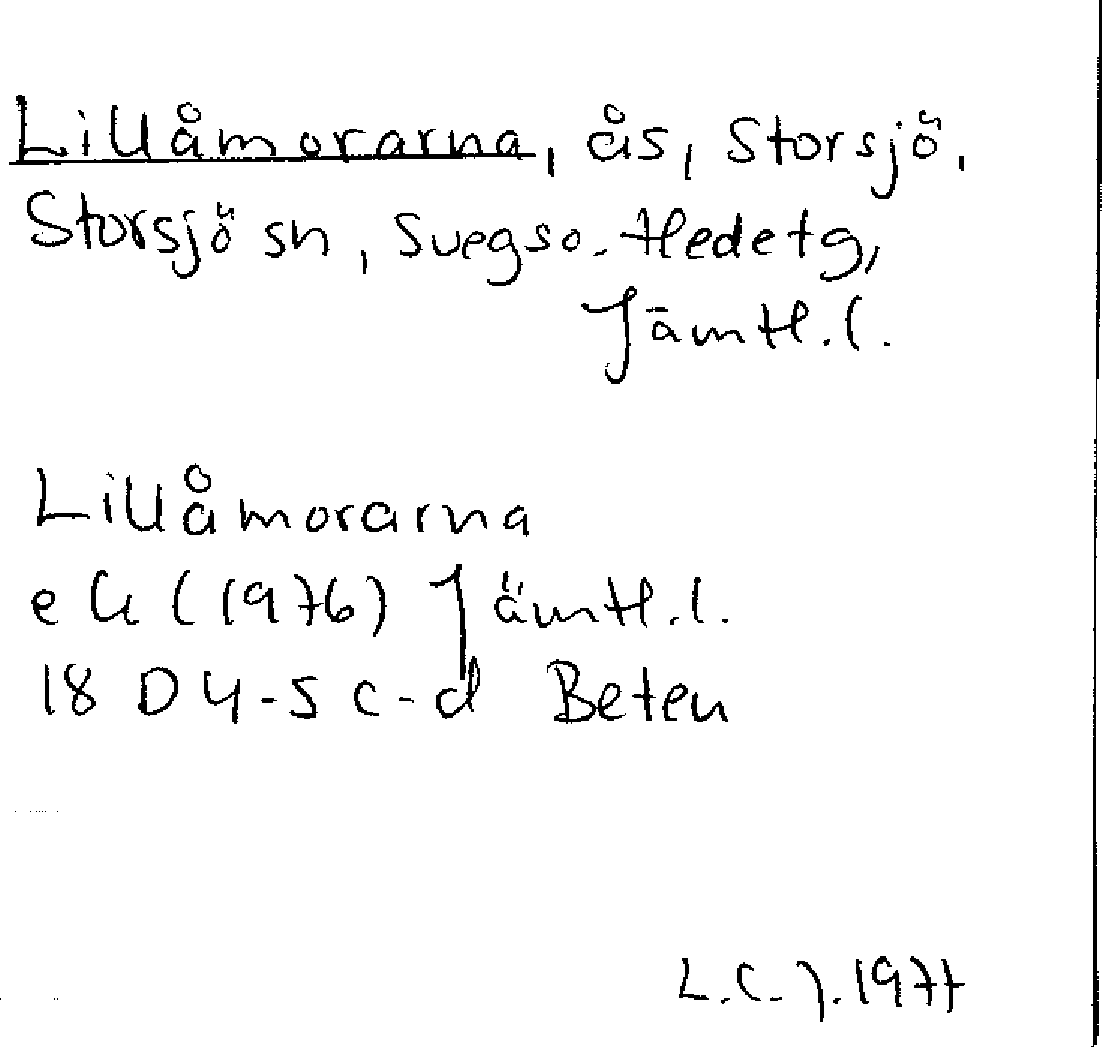 Lillåmorarna, ås, Storsjö,
Storsjö sn, Svegs o. Hede tg,
Jämtl. l.
Lillåmorarna
ek (1976) Jämtl. l.
18 D 4-5 c-d Beten
L.C.J. 1977